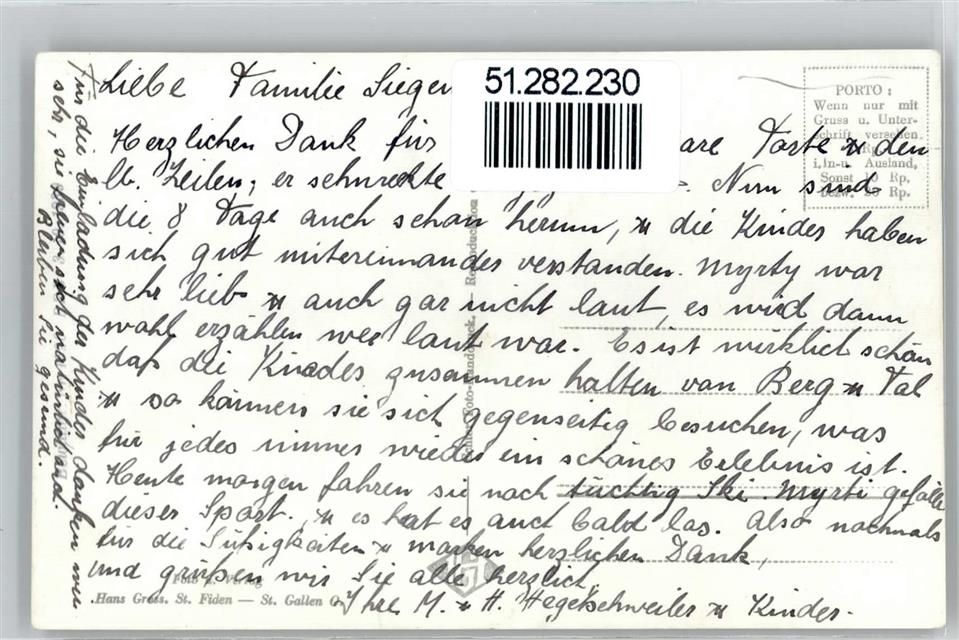 51.282.230
Liebe Familie Sieger
PORTO:
Wenn nur mit
Gruss u. Unter-
schrift versehen,
i. In- u. Ausland,
Sonst 10 Rp,
bezw. 20 Rp.
Herzlichen Dank für are Torte u den
lb. Zeilen, er schmeckte . Nun sind
die 8 Tage auch schon herum, u die Kinder haben
sich gut miteinander verstanden. Myrty war
sehr lieb u auch gar nicht laut, es wird dann
wohl erzählen wer laut war. Es ist wirklich schön
daß die Kinder zusammen halten von Berg u Tal
u so können sie sich gegenseitig besuchen, was
für jedes immer wieder ein schönes Erlebnis ist.
Heute morgen fahren sie noch tüchtig Ski. Myrti gefällt
dieser Sport, u es hat es auch bald los. Also nochmals
für die Süßigkeiten u marken herzlichen Dank,
und grüßen wir Sie alle herzlich,
Ihre M. u H. Hagelschweiler u Kinder.
Für die Einladung der Kinder danken wir
sehr, sie freuen sich natürlich
Bleiben Sie gesund.
Foto u. Verlag
Hans Gross. St. Fiden — St. Gallen O